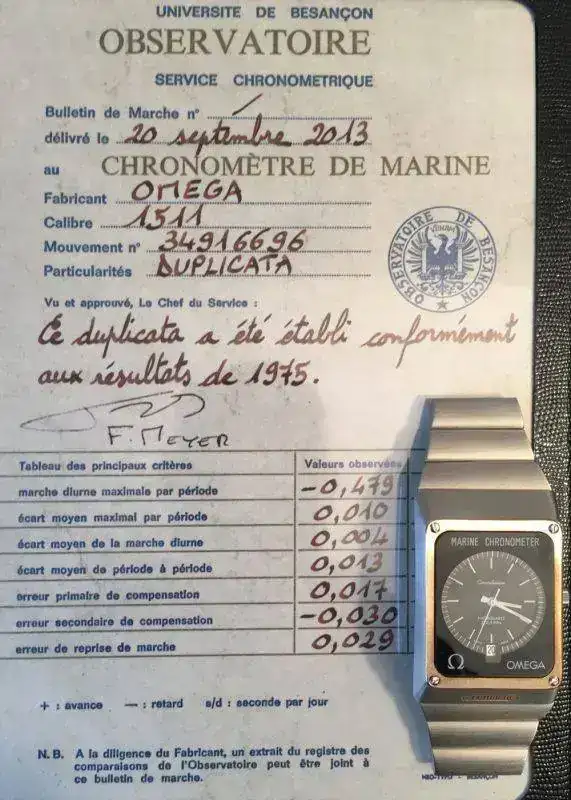 UNIVERSITE DE BESANÇON
OBSERVATOIRE
SERVICE CHRONOMETRIQUE
Bulletin de Marche n° /
délivré le 20 septembre 2013
au CHRONOMÈTRE DE MARINE
Fabricant OMEGA
Calibre 1511
Mouvement n° 34916696
Particularités DUPLICATA
OBSERVATOIRE DE BESANÇON
Vu et approuvé, Le Chef du Service :
Ce duplicata a été établi conformément
aux résultats de 1975.
F. MEYER
Tableau des principaux critères Valeurs observées
marche diurne maximale par période -0,479
écart moyen maximal par période 0,010
écart moyen de la marche diurne 0,004
écart moyen de période à période 0,013
erreur primaire de compensation 0,017
erreur secondaire de compensation -0,030
erreur de reprise de marche 0,029
+ : avance — : retard s/d : seconde par jour
N. B. A la diligence du Fabricant, un extrait du registre des
comparaisons de l'Observatoire peut être joint à
ce bulletin de marche.
NEO-TYPO - BESANÇON
MARINE CHRONOMETER
Constellation
20
Ω OMEGA